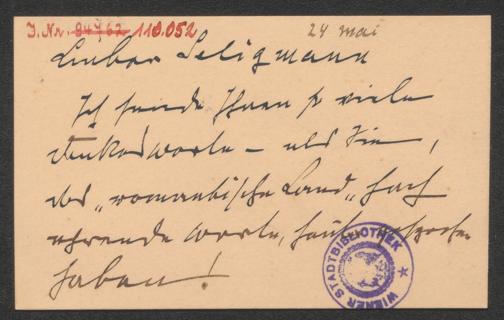 J. Nr. 94962 110.052
24 Mai
Lieber Seligmann
Ich sende Ihnen so viele
Dankesworte – als Sie,
das „romantische Land" hoch
ehrende Worte,
haben!
WIENER STADTBIBLIOTHEK